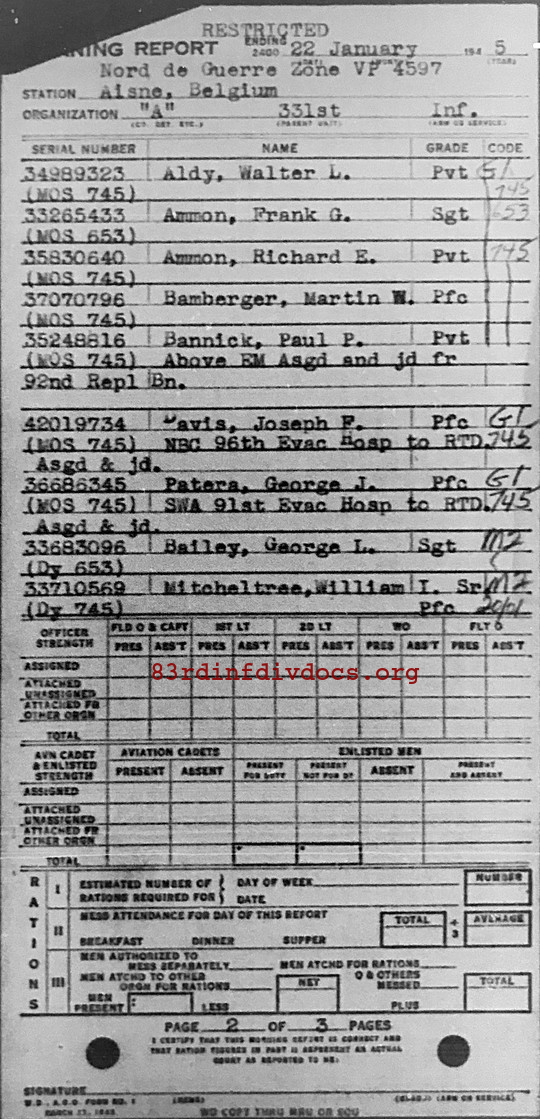 RESTRICTED
NING REPORT ENDING 2400 22 January 194 5
Nord de Guerre Zone VP 4597
STATION Aisne, Belgium
ORGANIZATION "A" 331st Inf.
(CO. DET. ETC.) (PARENT UNIT) (ARM OR SERVICE)
SERIAL NUMBER NAME GRADE CODE
34989323 Aldy, Walter L. Pvt
(MOS 745) 745
33265433 Ammon, Frank G. Sgt 653
(MOS 653)
35830640 Ammon, Richard E. Pvt 745
(MOS 745)
37070796 Bamberger, Martin W. Pfc
(MOS 745)
35248816 Bannick, Paul P. Pvt
(MOS 745) Above EM Asgd and jd fr
92nd Repl Bn.
42019734 Davis, Joseph F. Pfc G1
(MOS 745) NBC 96th Evac Hosp to RTD. 745
Asgd & jd.
36686345 Patera, George J. Pfc G1
(MOS 745) SWA 91st Evac Hosp to RTD. 745
Asgd & jd.
33683096 Bailey, George L. Sgt M2
(Dy 653)
33710569 Mitcheltree, William I. Sr M2
(Dy 745) Pfc
OFFICER STRENGTH FLD O & CAPT 1ST LT 2D LT WO FLT O
PRES ABS'T PRES ABS'T PRES ABS'T PRES ABS'T PRES ABS'T
ASSIGNED
ATTACHED UNASSIGNED
ATTACHED FR OTHER ORGN
TOTAL
83rdinfdivdocs.org
AVN CADET & ENLISTED STRENGTH AVIATION CADETS ENLISTED MEN
PRESENT ABSENT PRESENT FOR DUTY PRESENT NOT FOR DY ABSENT PRESENT AND ABSENT
ASSIGNED
ATTACHED UNASSIGNED
ATTACHED FR OTHER ORGN
TOTAL
RATIONS
I ESTIMATED NUMBER OF RATIONS REQUIRED FOR DAY OF WEEK DATE NUMBER
II MESS ATTENDANCE FOR DAY OF THIS REPORT TOTAL ÷ 3 AVERAGE
BREAKFAST DINNER SUPPER
III MEN AUTHORIZED TO MESS SEPARATELY MEN ATCHD FOR RATIONS
MEN ATCHD TO OTHER ORGN FOR RATIONS NET O & OTHERS MESSED TOTAL
MEN PRESENT LESS PLUS
PAGE 2 OF 3 PAGES
I CERTIFY THAT THIS MORNING REPORT IS CORRECT AND
THAT RATION FIGURES IN PART II REPRESENT AN ACTUAL
COUNT AS REPORTED TO ME:
SIGNATURE
W.D., A.G.O. FORM NO. 1 (NAME) (GRADE) (ARM OR SERVICE)
MARCH 13, 1943